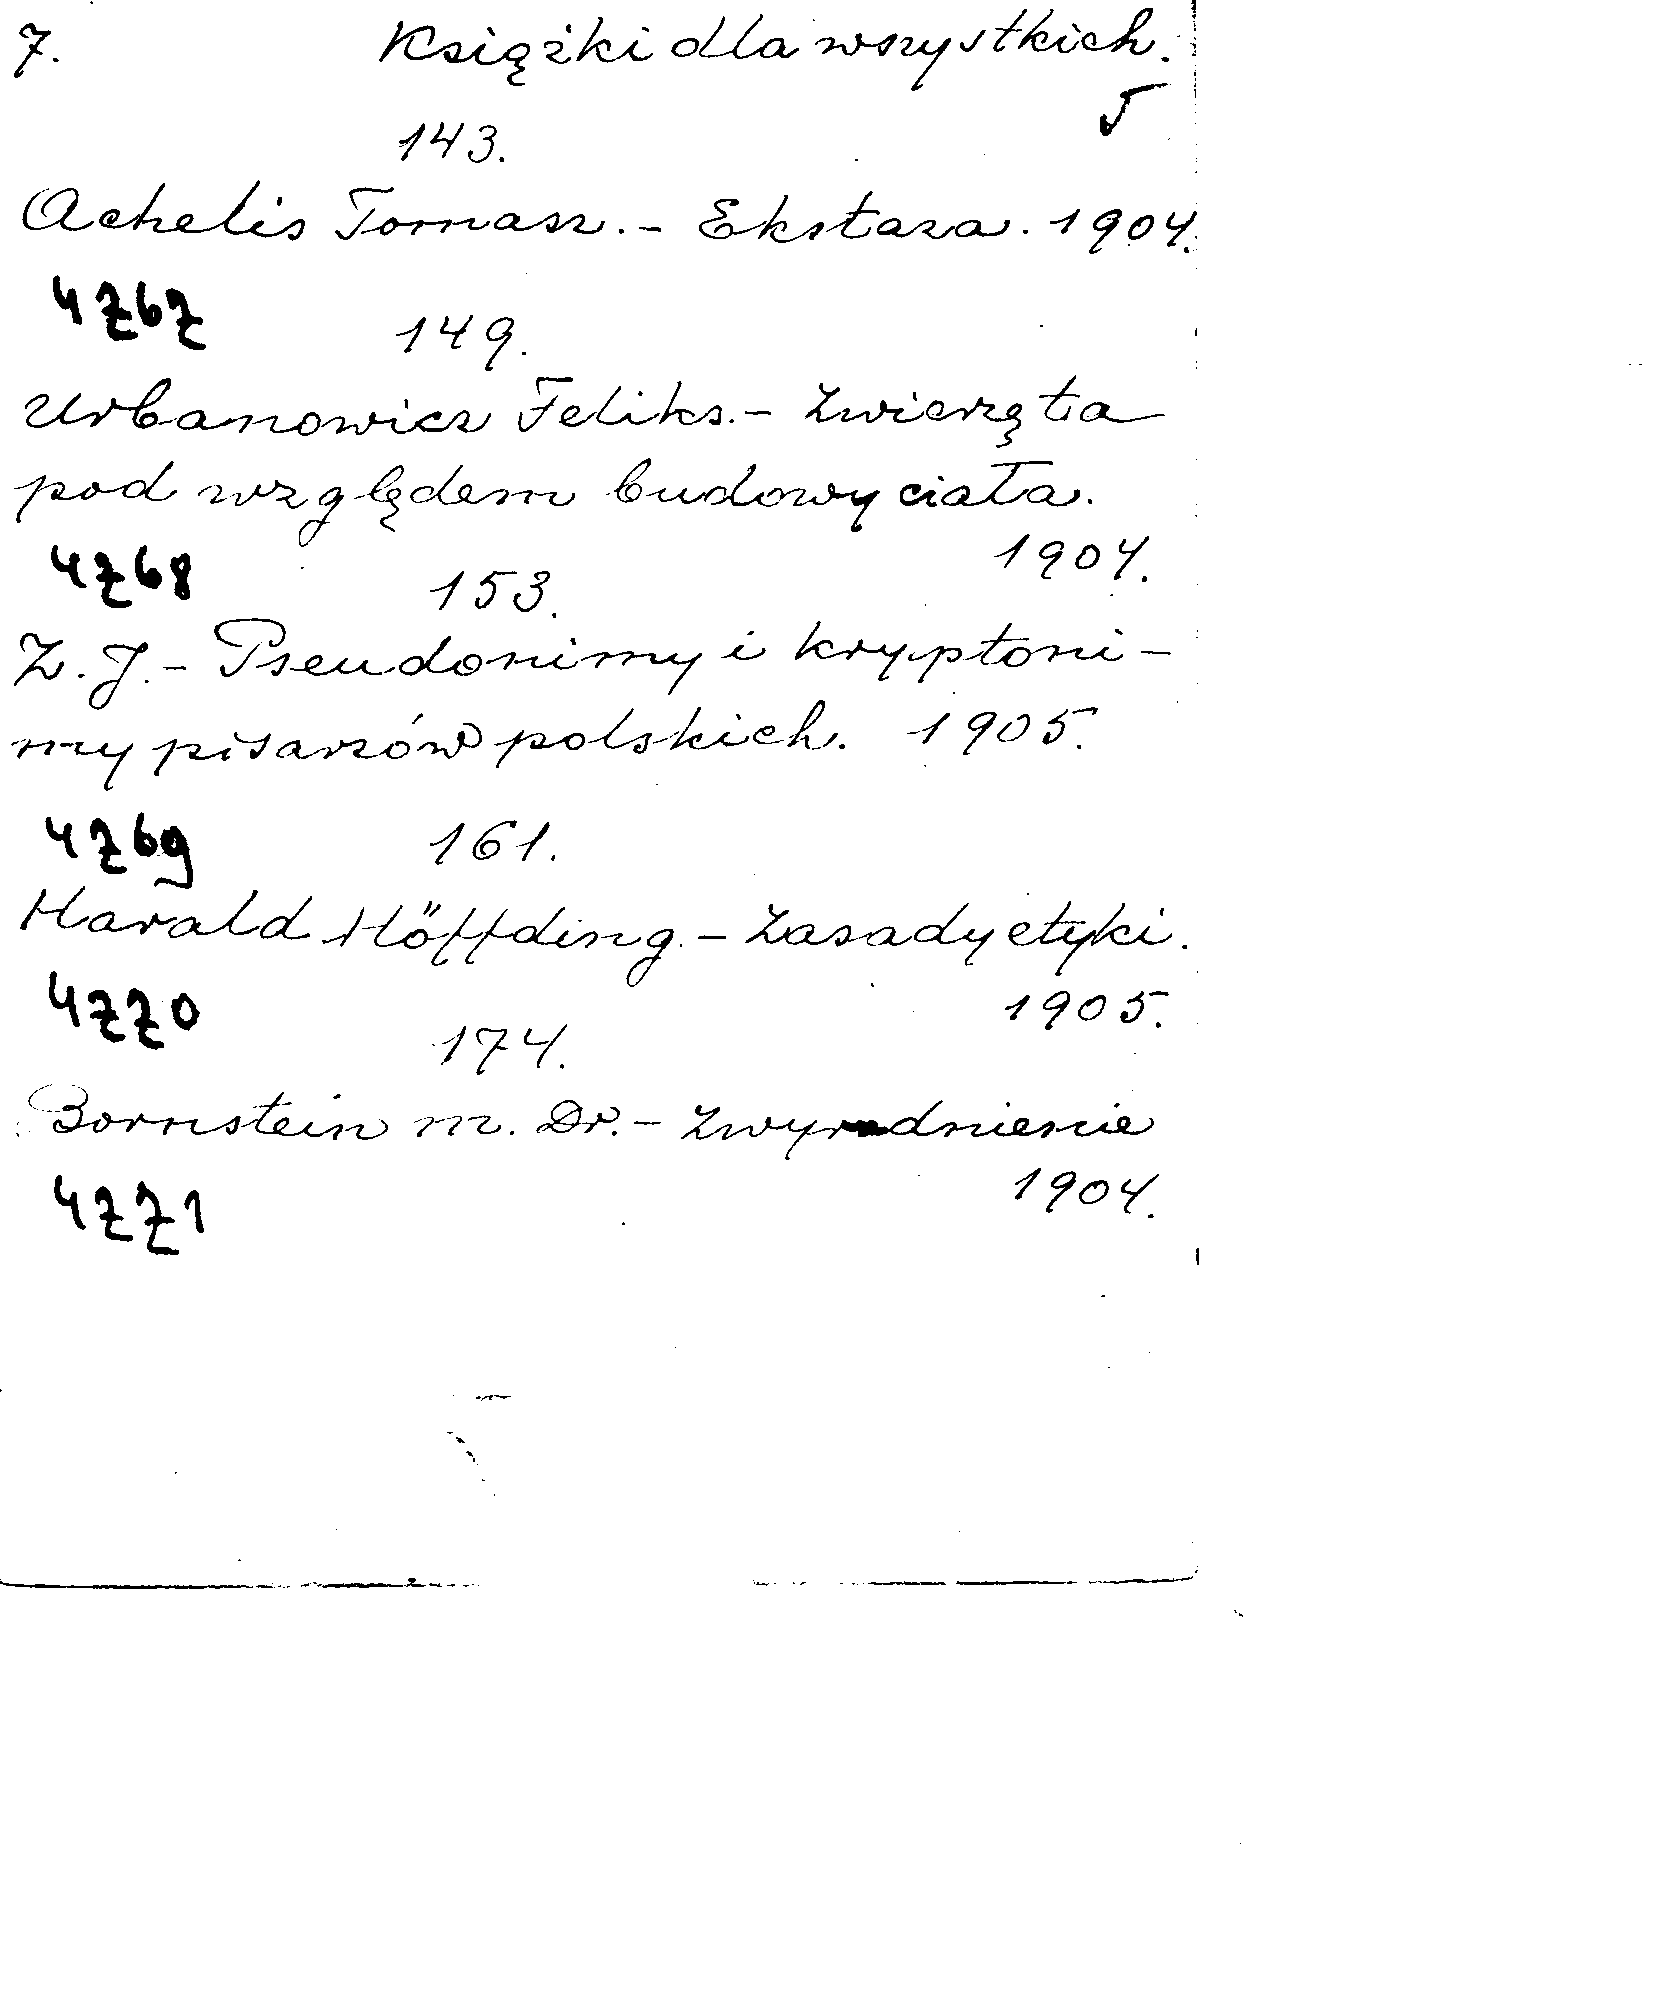 7. Książki dla wszystkich.
5
143.
Achelis Tomasz. - Ekstaza. 1904.
4767
149.
Urbanowicz Feliks. - Zwierzęta
pod względem budowy ciała.
1904.
4768
153.
Z. J. - Pseudonimy i kryptoni-
my pisarzów polskich. 1905.
4769
161.
Harald Höffding. - Zasady etyki.
1905.
4770
174.
Bornstein M. Dr. - Zwyrodnienie
1904.
4771